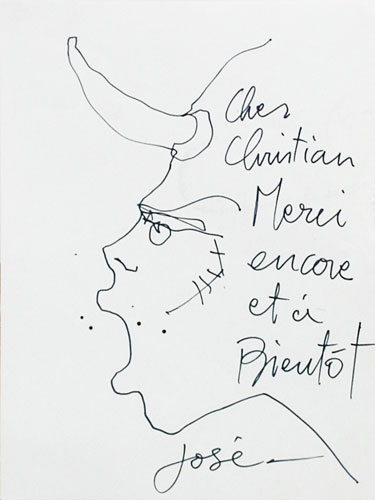 Cher
Christian
Merci
encore
et à
Bientôt
José